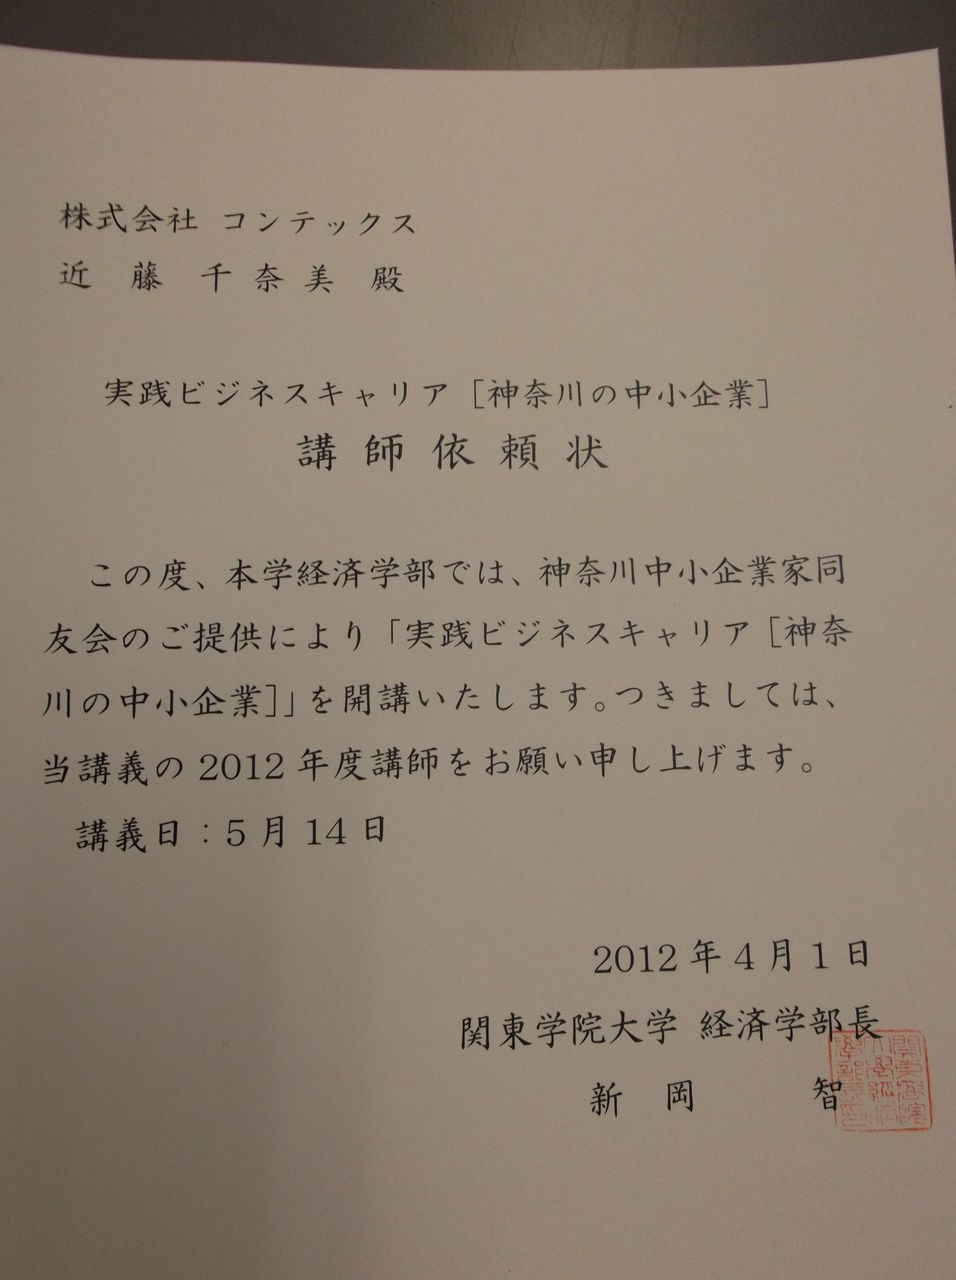 株式会社 コンテックス
近 藤 千 奈 美 殿
実践ビジネスキャリア［神奈川の中小企業］
講 師 依 頼 状
この度、本学経済学部では、神奈川中小企業家同
友会のご提供により「実践ビジネスキャリア［神奈
川の中小企業］」を開講いたします。つきましては、
当講義の 2012 年度講師をお願い申し上げます。
講義日：5 月 14 日
2012 年 4 月 1 日
関東学院大学 経済学部長
新 岡 智